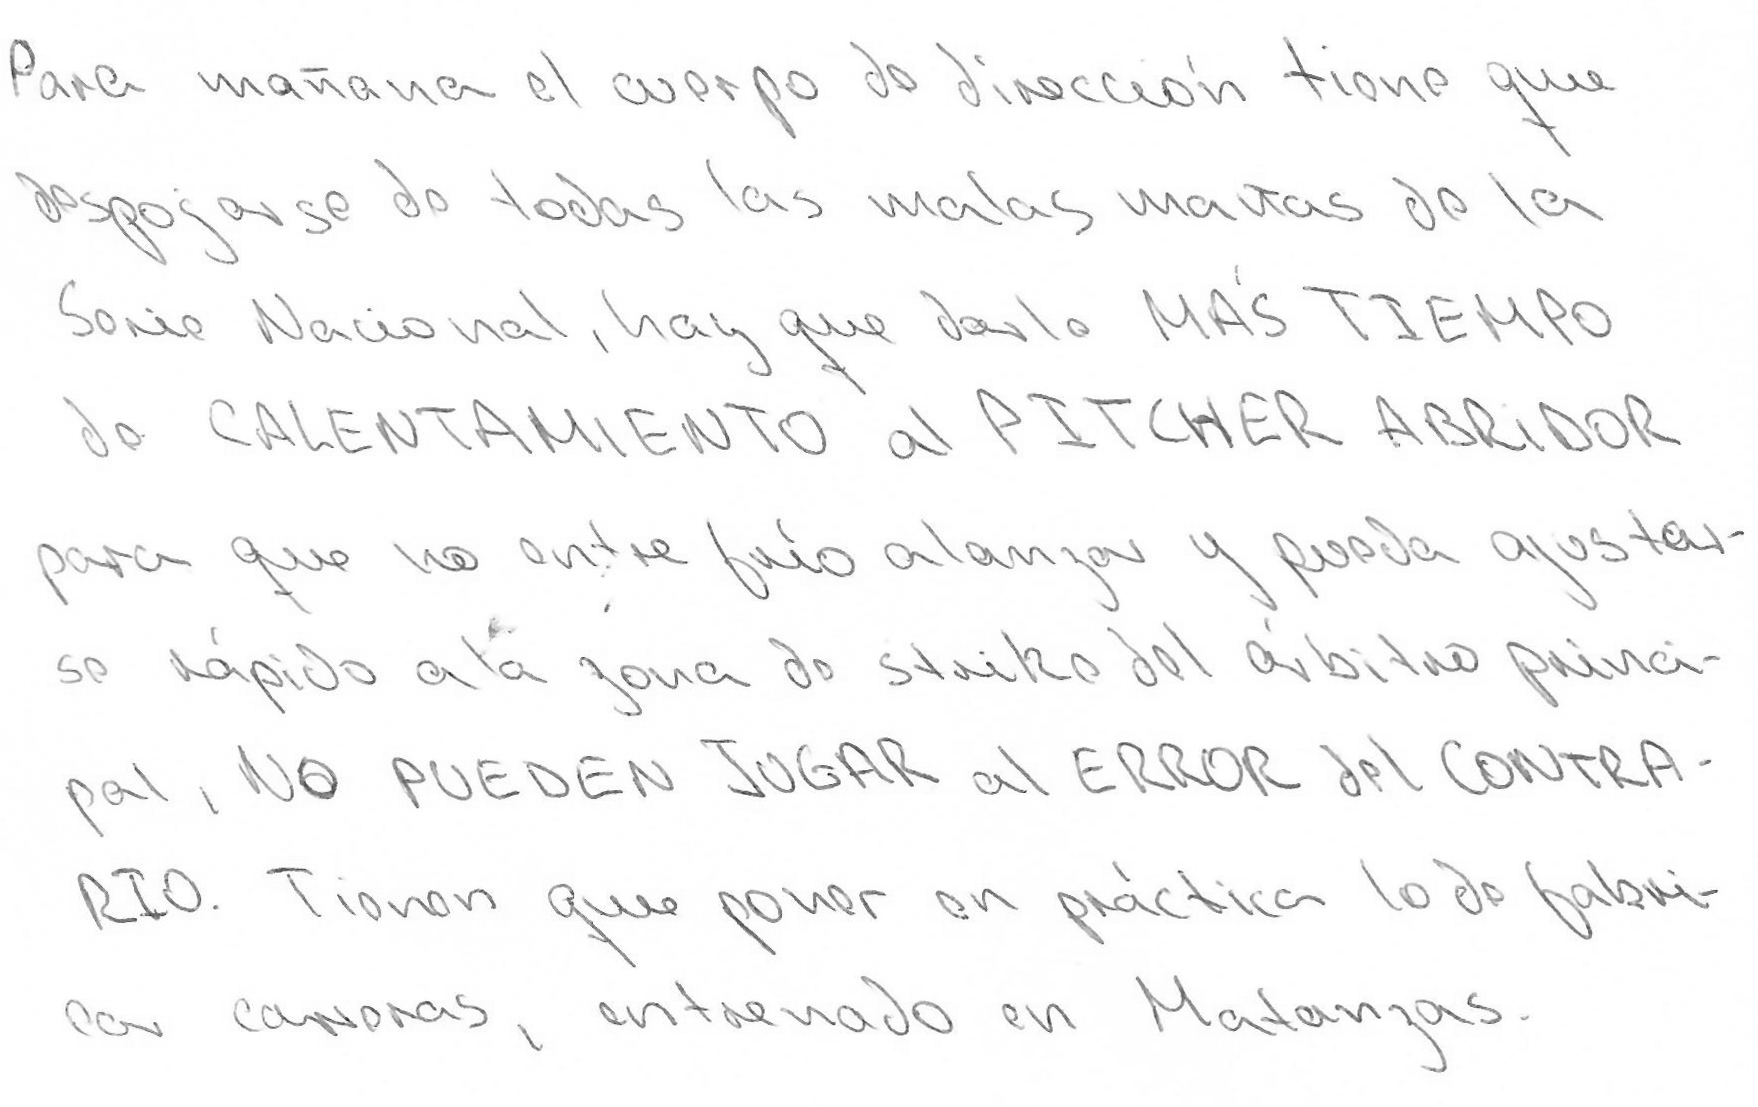 Para mañana el cuerpo de dirección tiene que
despojarse de todas las malas mañas de la
Serie Nacional, hay que darle MÁS TIEMPO
de CALENTAMIENTO al PITCHER ABRiDOR
para que no entre frío a lanzar y pueda ajustar-
se rápido a la zona de strike del árbitro princi-
pal, NO PUEDEN JUGAR al ERROR del CONTRA-
RIO. Tienen que poner en práctica lo de fabri-
car carreras, entrenado en Matanzas.